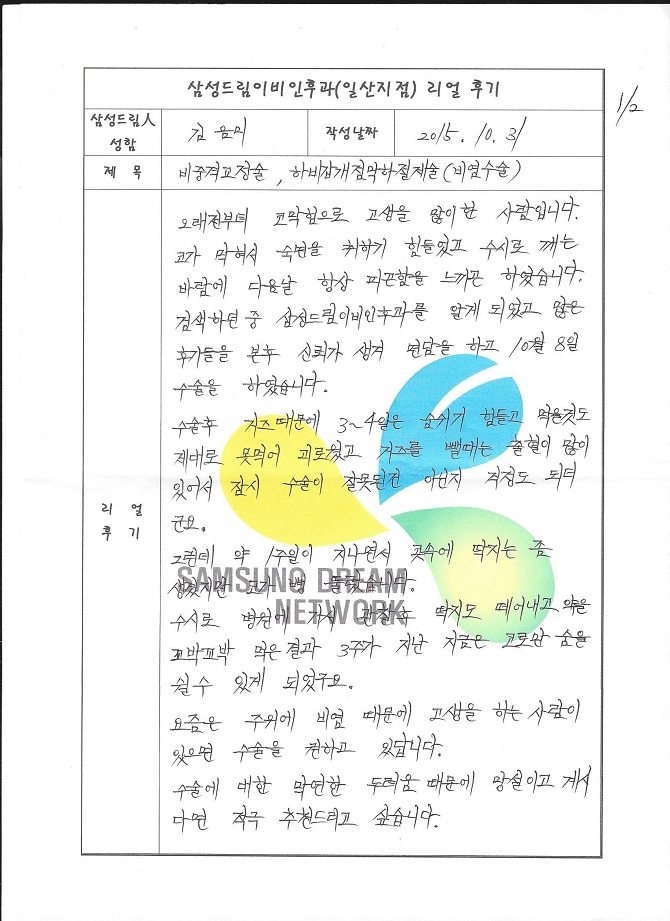 삼성드림이비인후과(일산지점) 리얼 후기
1/2
삼성드림人 성함
김
작성날짜
2015. 10. 31
제 목
비중격교정술, 하비갑개점막하절제술(비염수술)
리 얼 후 기
오래전부터 코막힘으로 고생을 많이한 사람입니다.
코가 막혀서 숙면을 취하기 힘들었고 수시로 깨는
바람에 다음날 항상 피곤함을 느끼곤 하였습니다.
검색하던 중 삼성드림이비인후과를 알게 되었고 많은
후기들을 본후 신뢰가 생겨 면담을 하고 10월 8일
수술을 하였습니다.
수술후 거즈때문에 3~4일은 숨쉬기 힘들고 먹을것도
제대로 못먹어 괴로웠고 거즈를 뺄때는 출혈이 많이
있어서 잠시 수술이 잘못된건 아닌지 걱정도 되더
군요.
그런데 약 1주일이 지나면서 콧속에 딱지는 좀
생겼지만 코가 뻥 뚫렸습니다.
수시로 병원에 가서 관찰후 딱지도 떼어내고 약을
꼬박꼬박 먹은결과 3주가 지난 지금은 코로만 숨을
쉴수 있게 되었구요.
요즘은 주위에 비염 때문에 고생을 하는 사람이
있으면 수술을 권하고 있답니다.
수술에 대한 막연한 두려움 때문에 망설이고 계시
다면 적극 추천드리고 싶습니다.
SAMSUNG DREAM
NETWORK